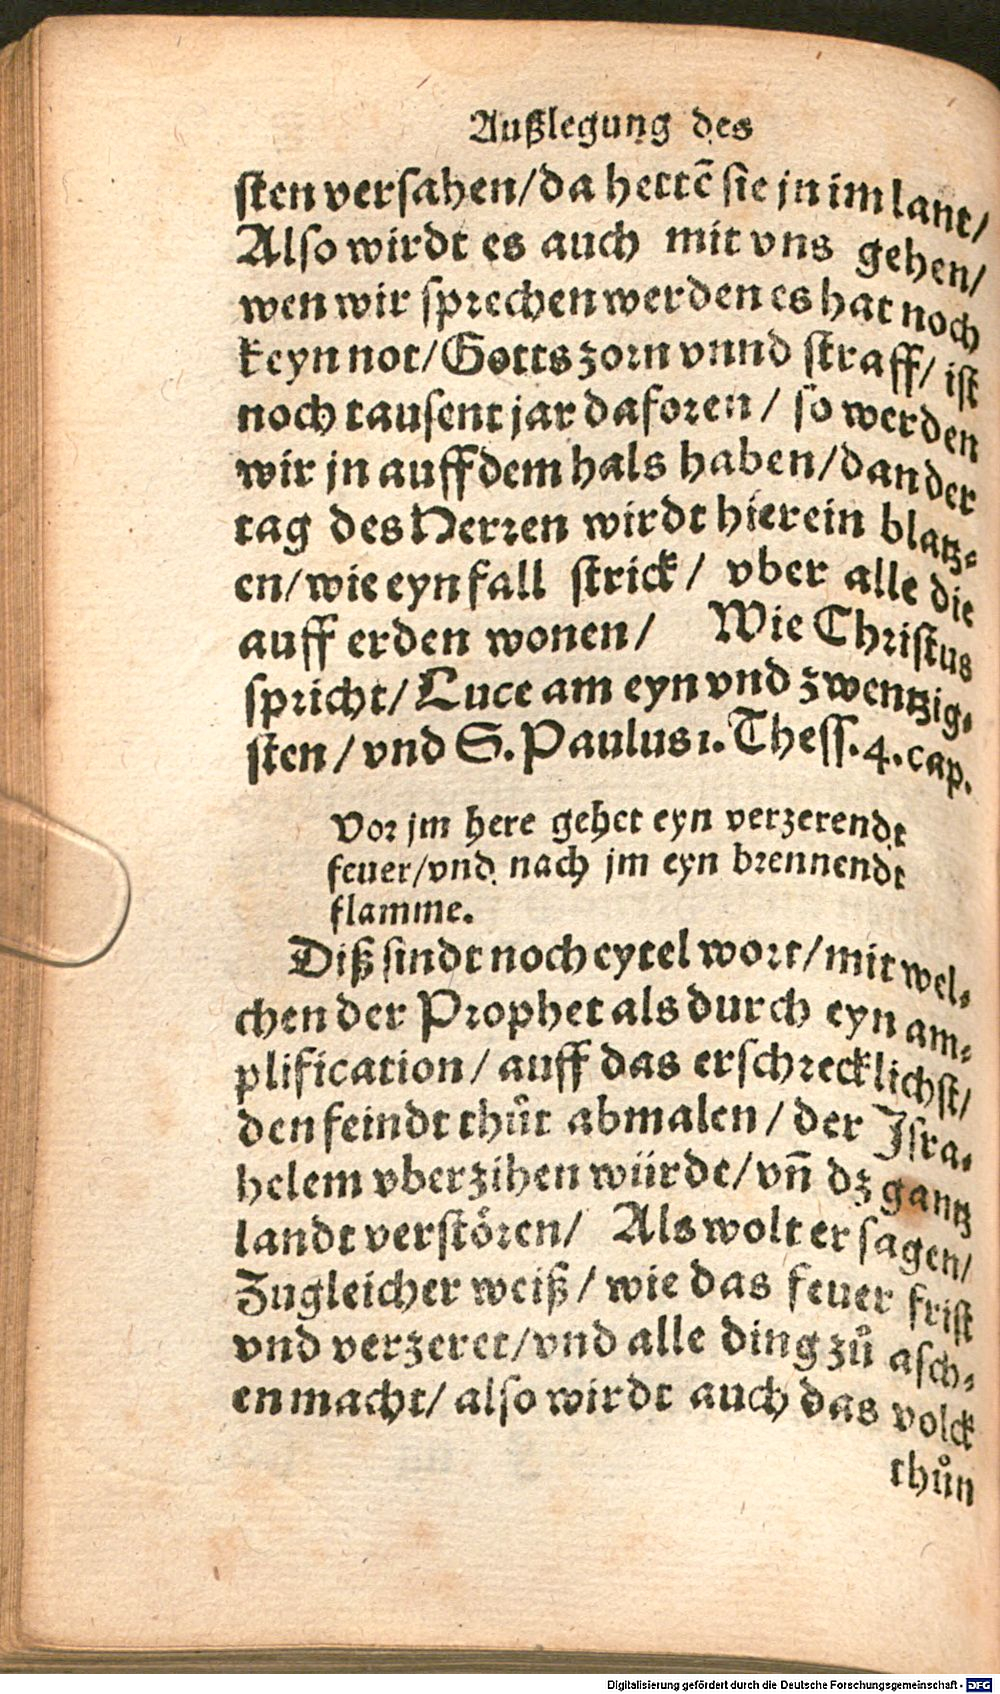 Außlegung des
sten versahen/da hettẽ sie jn im lant/
Also wirdt es auch mit vns gehen/
wen wir sprechen werden es hat noch
keyn not/Gotts zorn vnnd straff/ ist
noch tausent jar daforen / so werden
wir jn auff dem hals haben/dan der
tag des Herren wirdt hierein blatz⸗
en/wie eyn fall strick/ vber alle die
auff erden wonen/ Wie Christus
spricht/ Luce am eyn vnd zwentzig⸗
sten /vnd S. Paulus 1. Thess. 4. cap.
Vor jm here gehet eyn verzerendt
feuer/vnd nach jm eyn brennendt
flamme.
Diß sindt noch eytel wort/mit wel⸗
chen der Prophet als durch eyn am⸗
plification/ auff das erschrecklichst/
den feindt thůt abmalen/ der Jsra⸗
helem vberzihen würde/vñ dz gantz
landt verstören/ Als wolt er sagen/
Zugleicher weiß/ wie das feuer frist
vnd verzeret/vnd alle ding zů asch⸗
en macht/ also wirdt auch das volck
thůn
Digitalisierung gefördert durch die Deutsche Forschungsgemeinschaft - DFG